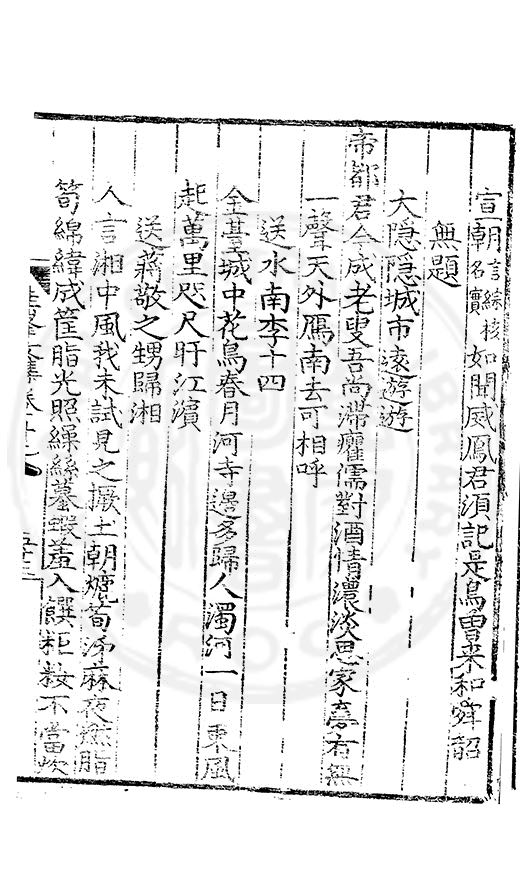 宣朝言綜核名實如聞威鳳君須記是鳥曾来和舜韶
無題
大隠隠城市遠遊遊
帝都君今成老叟吾尚滯癯儒對酒情濃淡思家夢有無
一聲天外鴈南去可相呼
送水南李十四
金臺城中花鳥春月河寺邊多歸人濁河一日乘風
起萬里咫尺盱江濱
送蔣敬之甥歸湘
人言湘中風我未試見之掘土朝燒筍浮麻夜燃脂
筍綿緯成筐脂光照繰絲蟇蝦羞入饌粔籹不當炊
文集卷十